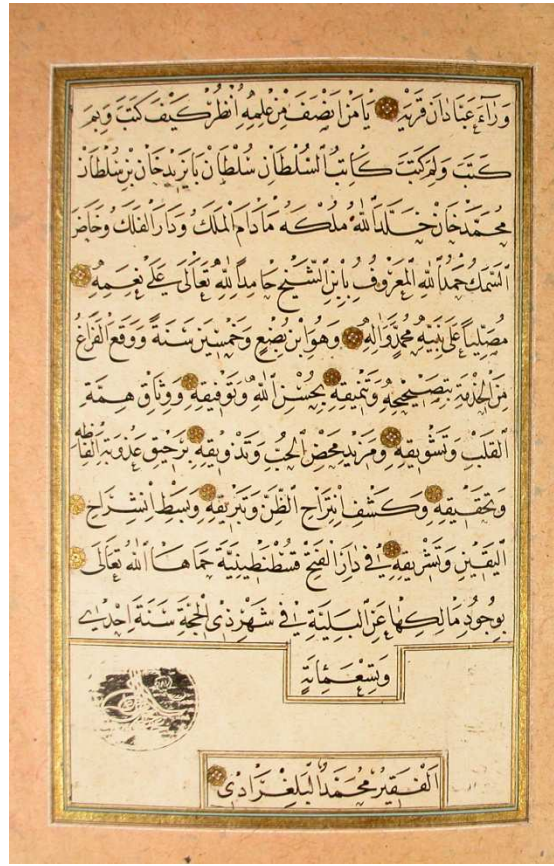 وراء عبادان قرية يا من انصف من علمه انظر كيف كتب وبم
كتب ولم كتب كاتب السلطان سلطان بايزيد خان بن سلطان
محمد خان خلد الله ملكه ما دام الملك ودار الفلك وخاض
السمك حمد الله المعروف بابن الشيخ حامدا لله تعالى على نعمه
مصليا على نبيه محمد واله وهو ابن بضع وخمسين سنة ووقع الفراغ
من الخدمة بتصحيحه وتنميقه بحسن الله وتوفيقه ووثاق همة
القلب وتشويقه ومزيد محض الحب وتذويقه برحيق عذوبة الفاظه
وتحقيقه وكشف انتزاح الظن وتبريقه وبسط انشراح
اليقين وتشريقه في دار الفتح قسطنطينية حماها الله تعالى
بوجود مالكها عن البلية في شهر ذي الحجة سنة احدى
وتسعمائة
الفقير محمد البلغرادي